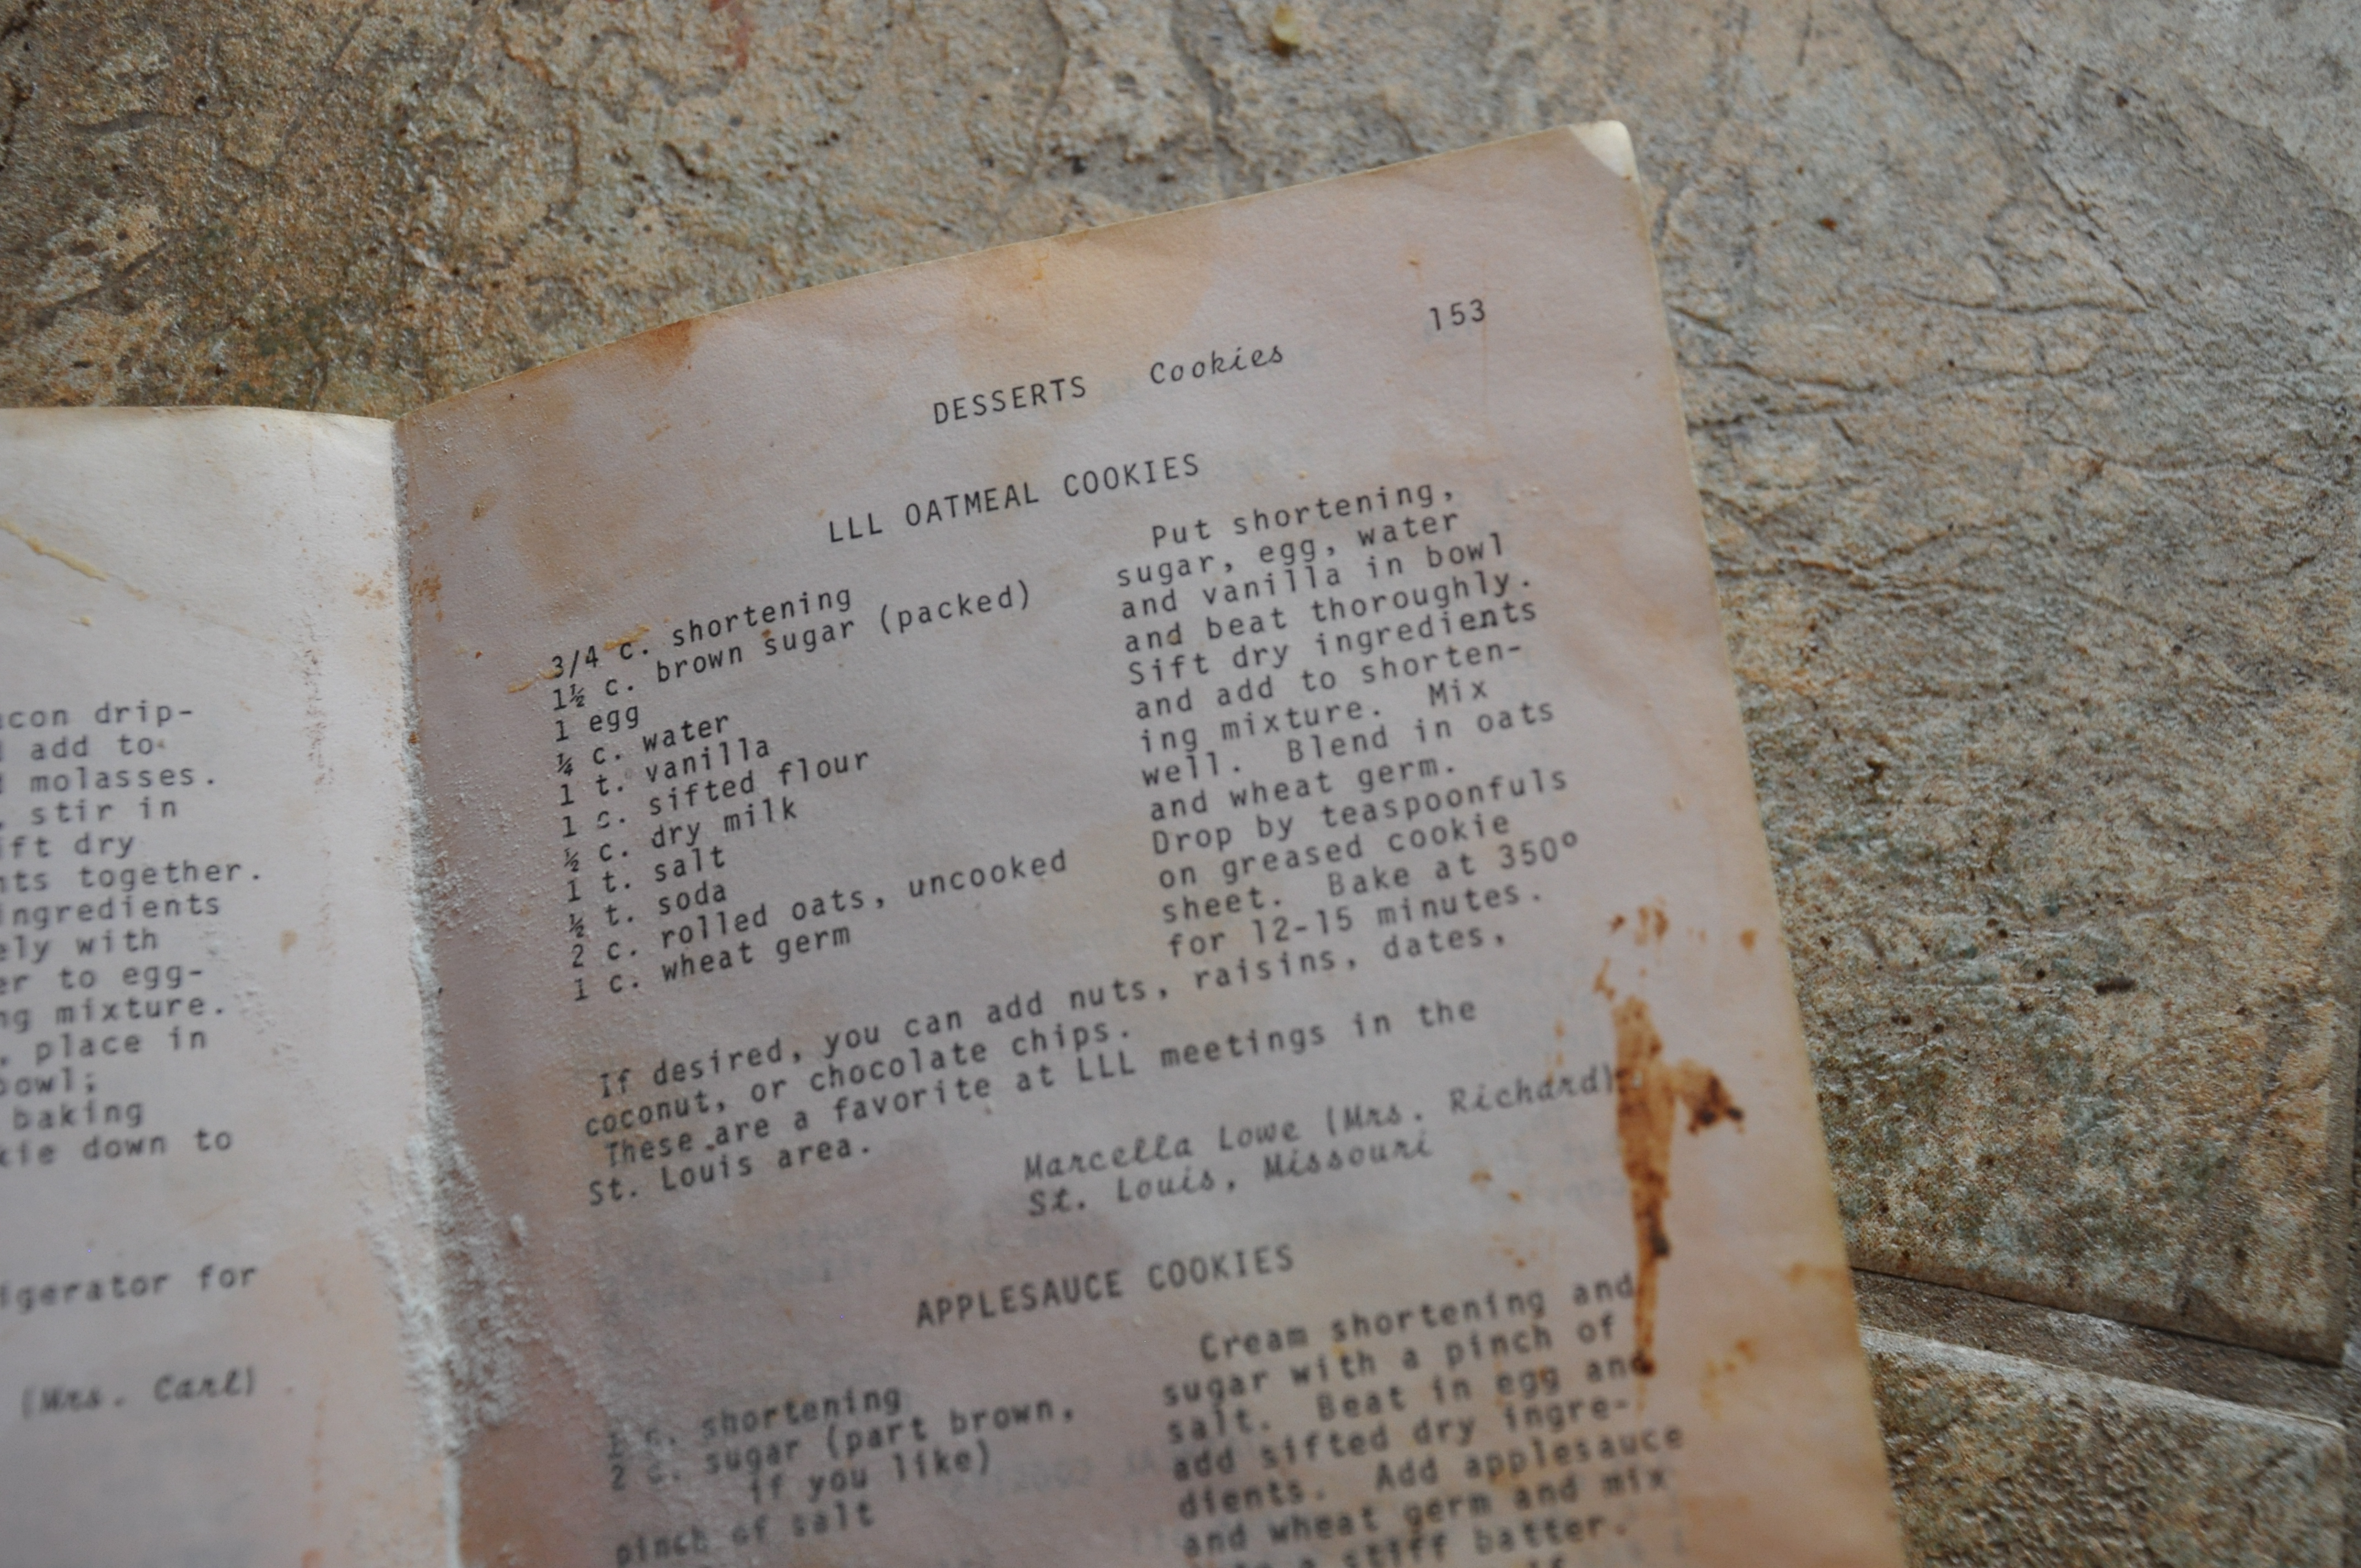 drip-
add to
molasses.
stir in
dry
together.
ingredients
with
to egg-
mixture.
, place in
bowl;
baking
down to
for
(Mrs. Carl)
153
DESSERTS Cookies
LLL OATMEAL COOKIES
3/4 c. shortening
1½ c. brown sugar (packed)
1 egg
¼ c. water
1 t. vanilla
1 c. sifted flour
½ c. dry milk
1 t. salt
½ t. soda
2 c. rolled oats, uncooked
1 c. wheat germ
Put shortening,
sugar, egg, water
and vanilla in bowl
and beat thoroughly.
Sift dry ingredients
and add to shorten-
ing mixture. Mix
well. Blend in oats
and wheat germ.
Drop by teaspoonfuls
on greased cookie
sheet. Bake at 350º
for 12-15 minutes.
If desired, you can add nuts, raisins, dates,
coconut, or chocolate chips.
These are a favorite at LLL meetings in the
St. Louis area.
Marcella Lowe (Mrs. Richard)
St. Louis, Missouri
APPLESAUCE COOKIES
c. shortening
2 c. sugar (part brown,
if you like)
pinch of salt
Cream shortening and
sugar with a pinch of
salt. Beat in egg and
add sifted dry ingre-
dients. Add applesauce
and wheat germ and mix
a stiff batter.